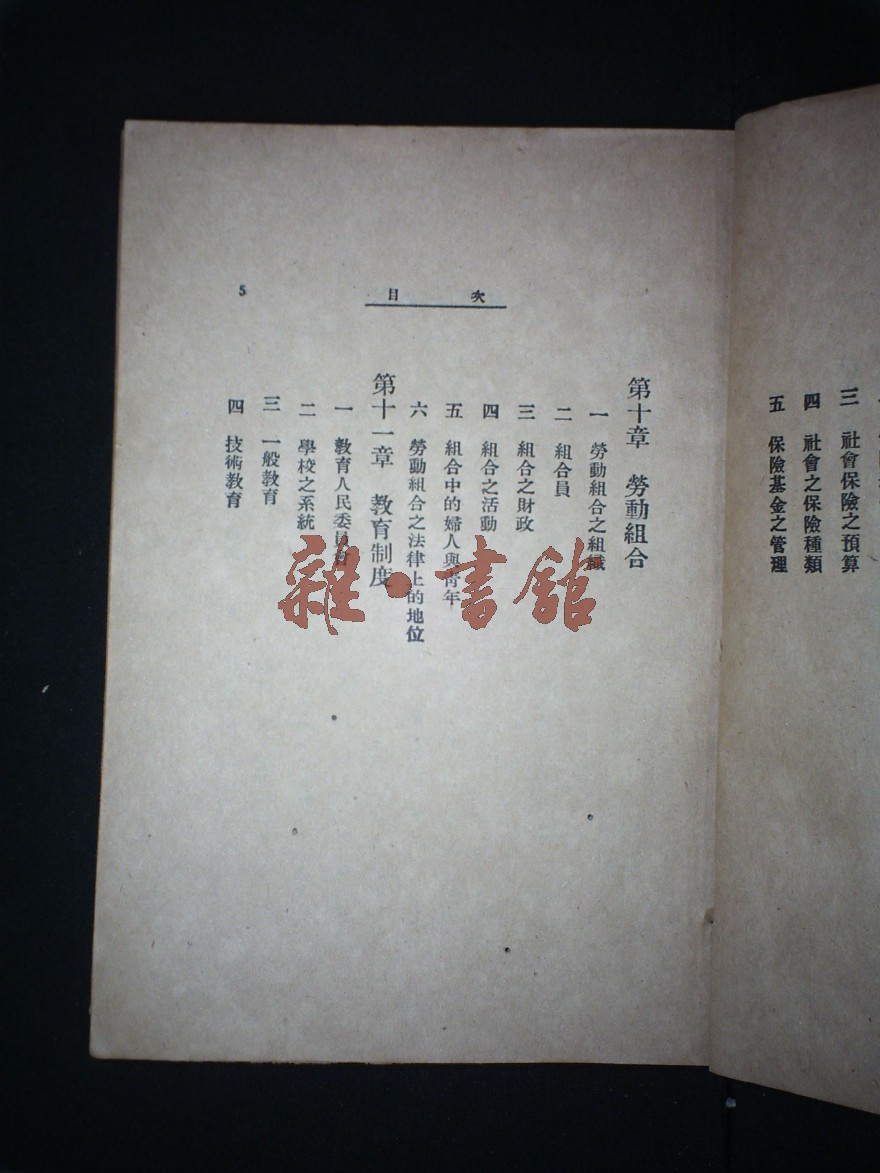 三 社會保險之預算
四 社會之保險種類
五 保險基金之管理
次目
5
第十章 勞動組合
一 勞動組合之組織
二 組合員
三 組合之財政
四 組合之活動
五 組合中的婦人與青年
六 勞動組合之法律上的地位
第十一章 教育制度
一 教育人民委員會
二 學校之系統
三 一般教育
四 技術教育
雜·書館